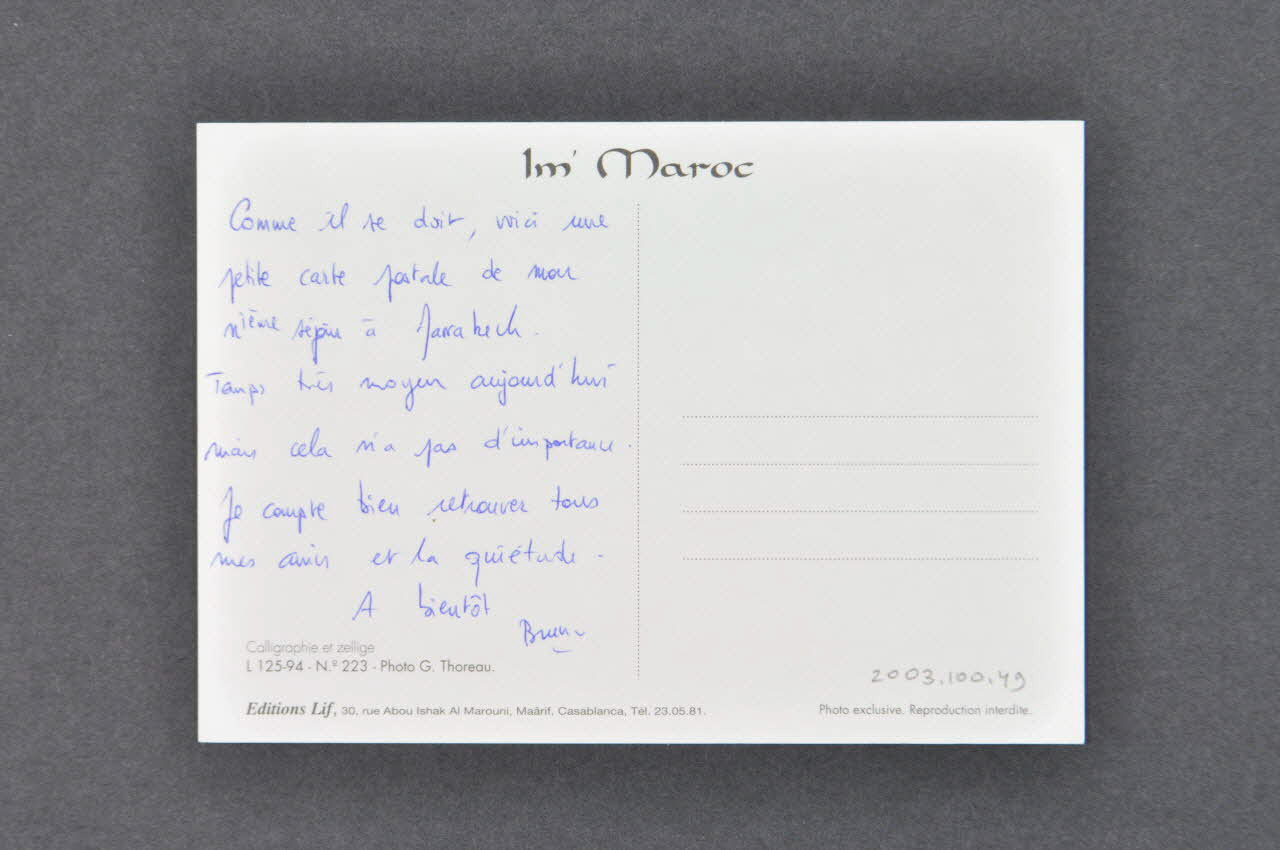 Im' Maroc
Comme il se doit, voici une
petite carte postale de mon
nième séjour à Marrakech.
Temps très moyen aujourd'hui
mais cela n'a pas d'importance.
Je compte bien retrouver tous
mes amis et la quiétude.
A bientôt
Bruno
Calligraphie et zellige
L 125-94 - N.º 223 - Photo G. Thoreau.
Editions Lif, 30, rue Abou Ishak Al Marouni, Maârif, Casablanca, Tél. 23.05.81.
2003.100.49
Photo exclusive. Reproduction interdite.